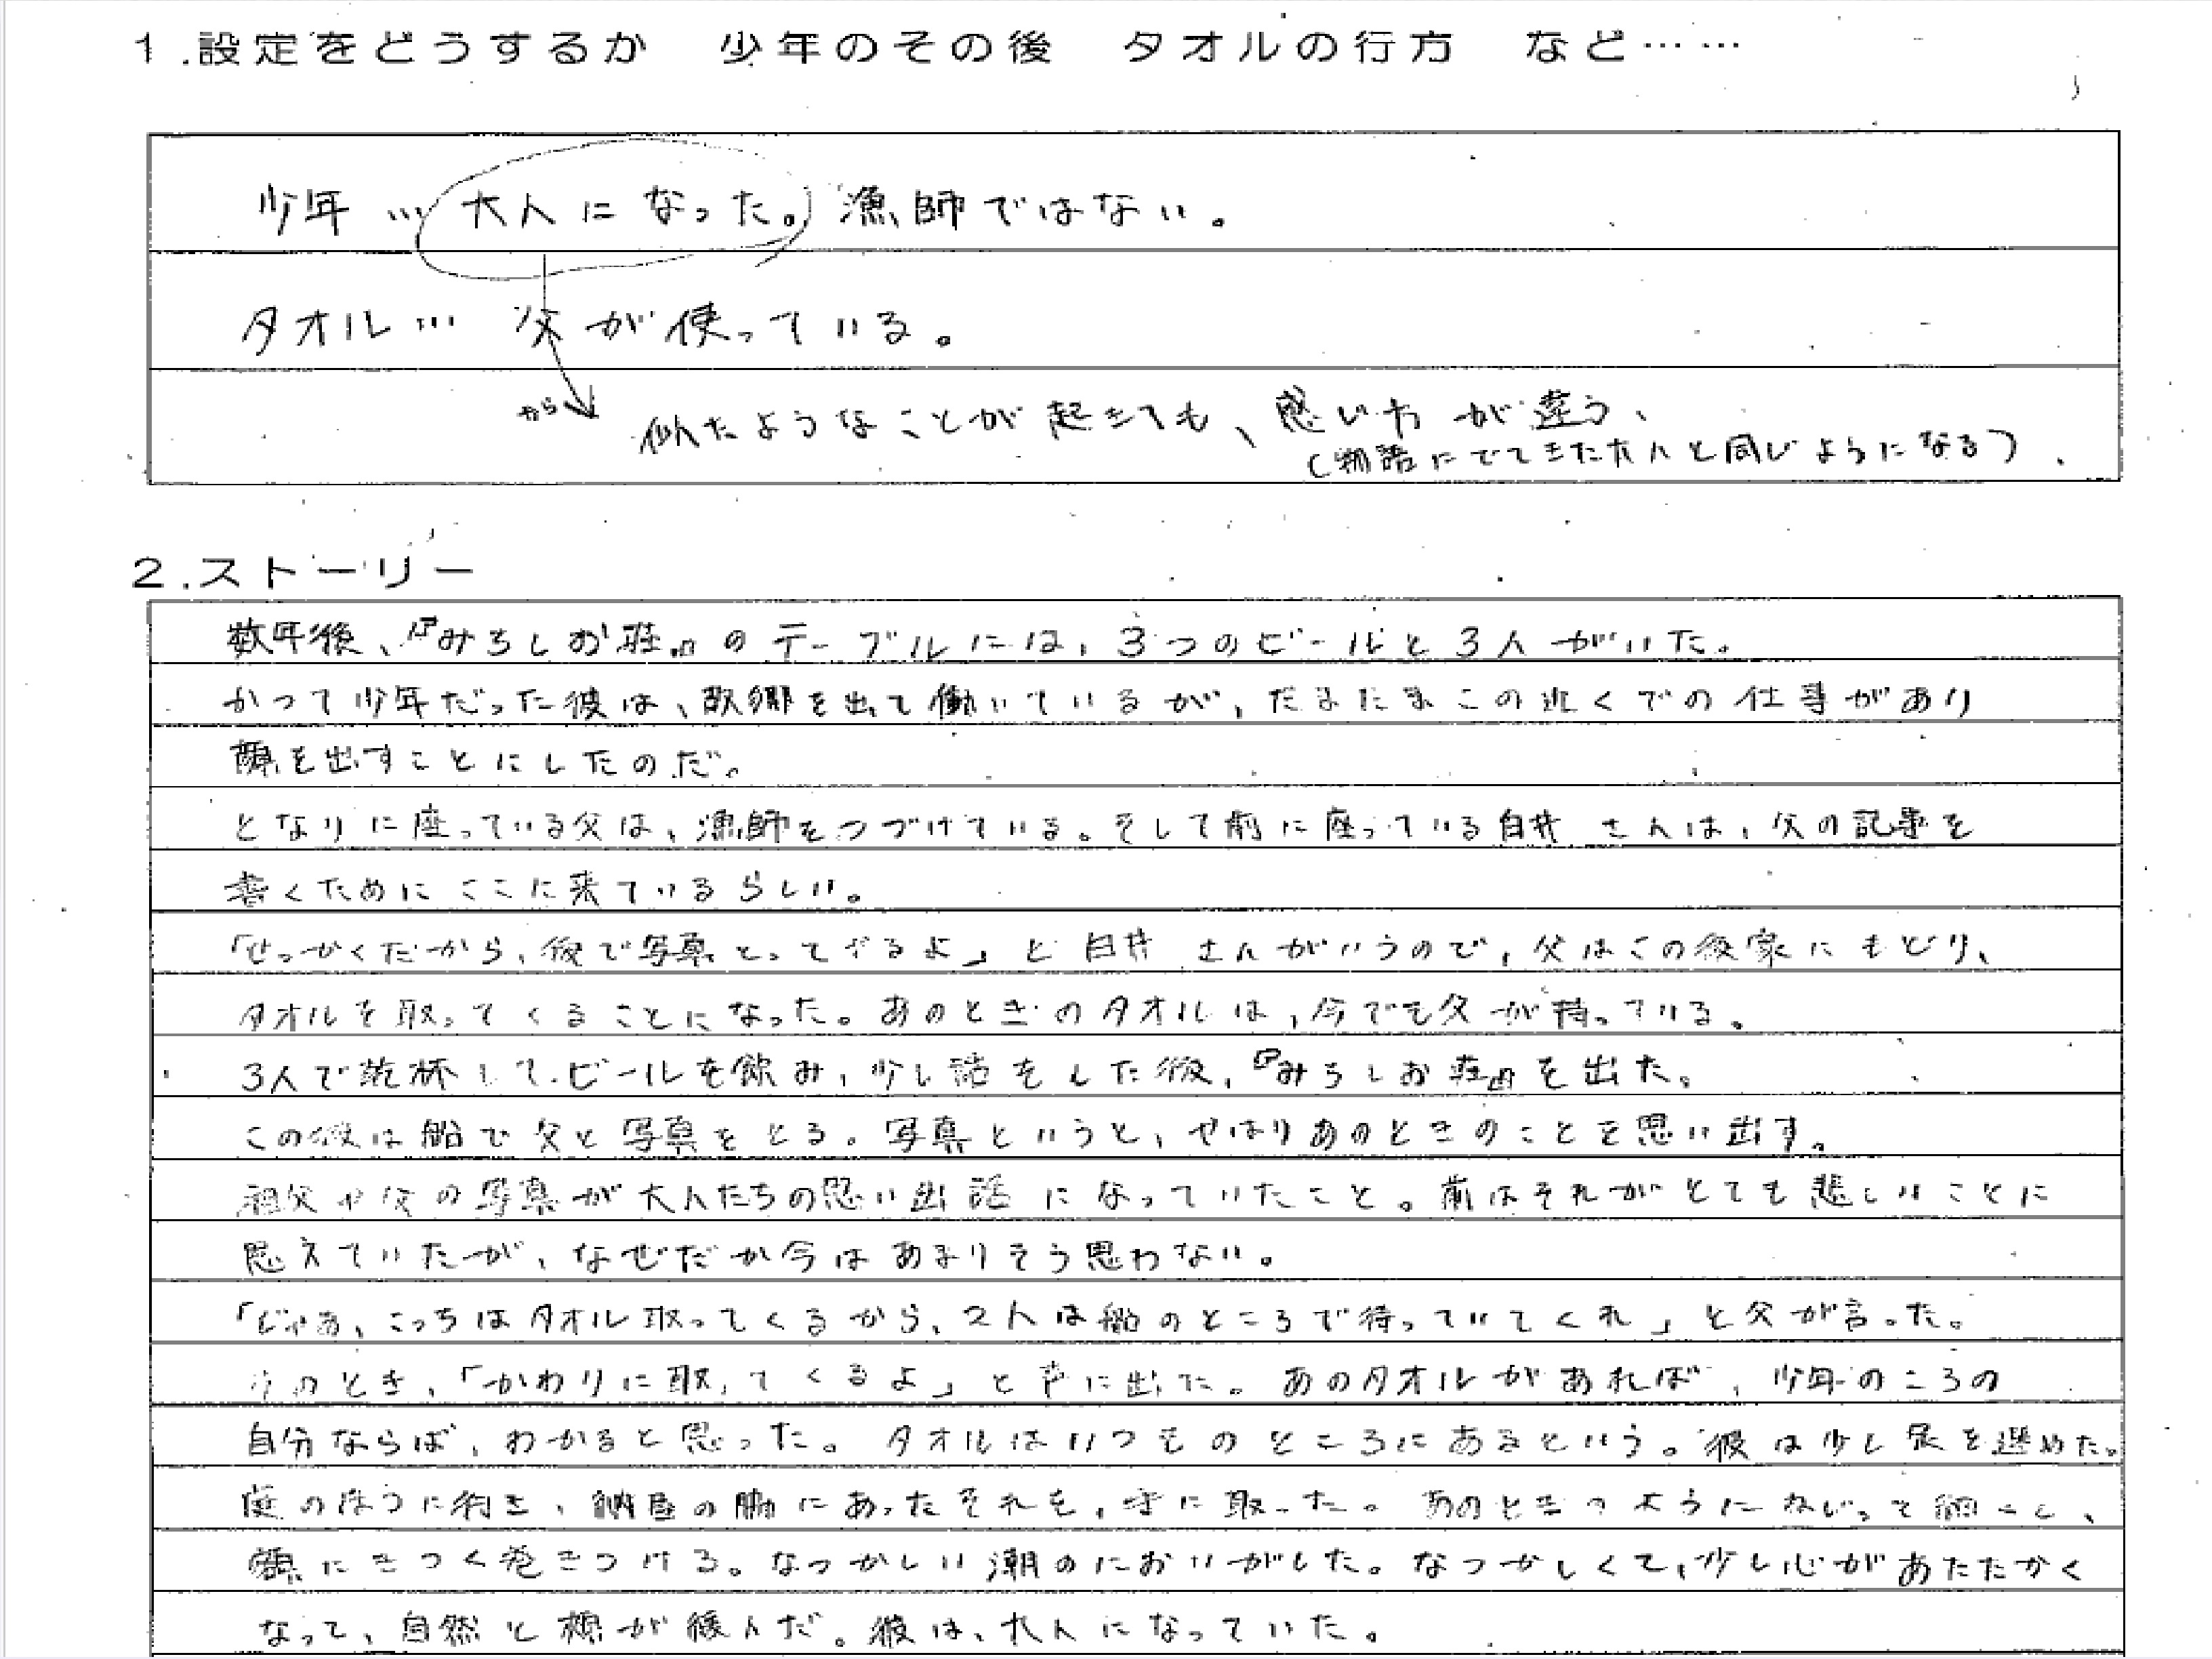 1.設定をどうするか　少年のその後　タオルの行方　など……
少年… 大人になった。漁師ではない。
タオル… 父が使っている。
から 似たようなことが起きても、感じ方が違う、
(物語にでてきた大人と同じようになる)
2.ストーリー
数年後、『みちしお荘』のテーブルには、3つのビールと3人がいた。
かつて少年だった彼は、故郷を出て働いているが、たまたまこの近くでの仕事があり
顔を出すことにしたのだ。
となりに座っている父は、漁師をつづけている。そして前に座っている白井さんは、父の記事を
書くためにここに来ているらしい。
「せっかくだから、後で写真とってやるよ」と白井さんがいうので、父はこの後家にもどり、
タオルを取ってくることになった。あのときのタオルは、今でも父が持っている。
3人で乾杯して、ビールを飲み、少し話をした後、『みちしお荘』を出た。
この後は船で父と写真をとる。写真というと、やはりあのときのことを思い出す。
祖父や父の写真が大人たちの思い出話になっていたこと。前はそれがとても悲しいことに
思えていたが、なぜだか今はあまりそう思わない。
「じゃあ、こっちはタオル取ってくるから、2人は船のところで待っていてくれ」と父が言った。
そのとき、「かわりに取ってくるよ」と声に出た。あのタオルがあれば、少年のころの
自分ならば、わかると思った。タオルはいつものところにあるという。彼は少し足を速めた。
庭のほうに行き、納屋の脇にあったそれを、手に取った。あのときのようにねじって細くし、
額にきつく巻きつける。なつかしい潮のにおいがした。なつかしくて、少し心があたたかく
なって、自然と頬が緩んだ。彼は、大人になっていた。